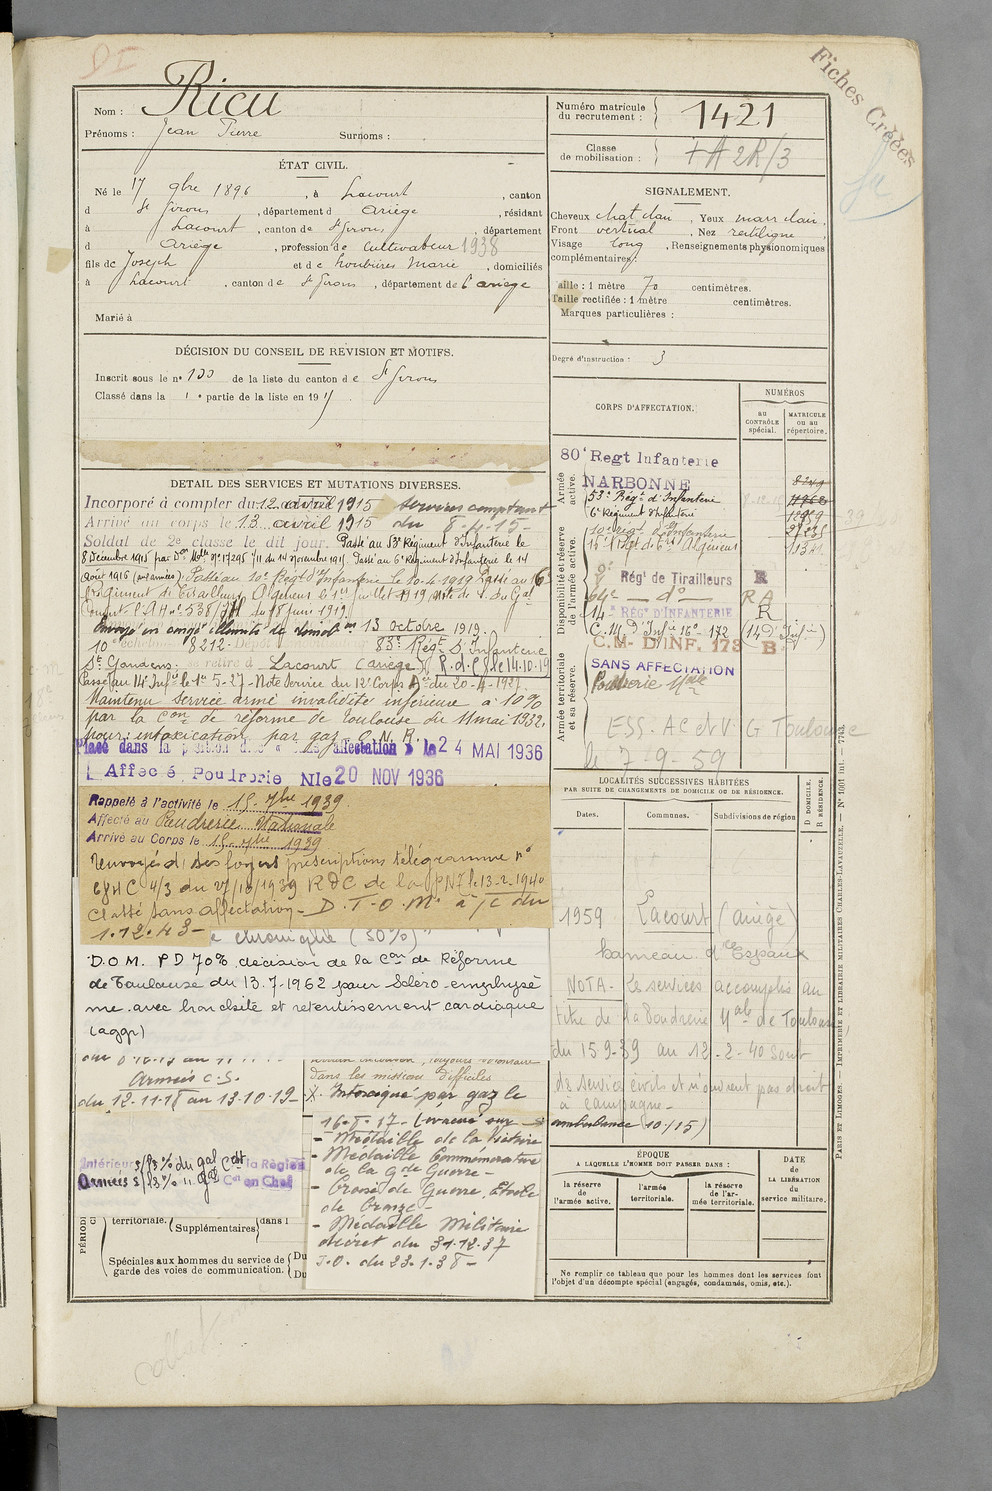 Fiches Créées
Nom : Ricu
Prénoms : Jean Pierre Surnoms :
ÉTAT CIVIL.
Né le 17 9bre 1896, à Lacourt, canton
d St Girons, département d Ariège, résidant
à Lacourt, canton de St Girons, département
d Ariège, profession de cultivateur 1938
fils de Joseph et de Marie, domiciliés
à Lacourt, canton de St Girons, département de l'Ariège
Marié à
DÉCISION DU CONSEIL DE REVISION ET MOTIFS.
Inscrit sous le n° 100 de la liste du canton de St Girons
Classé dans la 1e partie de la liste en 19
DETAIL DES SERVICES ET MUTATIONS DIVERSES.
Incorporé à compter du 12 avril 1915 services comptant
Arrivé au corps le 13 avril 1915 du 8-4-15-
Soldat de 2e classe le dit jour. Passé au 53e Régiment d'Infanterie le
8 Décembre 1915 par Don Mlle N° 17295 1/11 du 14 novembre 1915 Passé au 6e Régiment d'Infanterie le 14
Août 1916 (aux armées). Passé au 10e Régt d'Infanterie le 10-4-1919 Passé au 16e
Régiment de Tirailleurs Algériens le 1er juillet 1919 Note de S. du Gal
du 18 juin 1919.
Envoyé en congé illimité de démob on 13 octobre 1919.
10e échelon 8212 Dépôt 83e Régt d'Infanterie
St Gaudens se retire à Lacourt (Ariège) R.d.C. le 14.10.19
Passé au 14e Infie le 1er 5-27 - Note Service du 12e Corps Aée du 20-4-1927.
Maintenu service armé invalidité inférieure à 10%
par la Con de réforme de Toulouse du 11 mai 1932.
pour : intoxication par gaz O.N.R.
Placé dans la position dite « sans affectation » le 24 MAI 1936
Affecté Poudrerie Nle 20 NOV 1936
Rappelé à l'activité le 15-7bre 1939
Affecté au Poudrerie Nationale
Arrivé au Corps le 15-7bre 1939
Renvoyé ds ses foyers prescriptions télégramme n°
4/3 du 27/10/1939 RDC de la PN le 13-2-1940
Classé sans affectation - D.T.O.M. à /c du
1.12.43-
e chronique (30%)"
D.O.M. PD 70% décision de la Con de Réforme
de Toulouse du 13.7-1962 pour Scléro-emphysè
me avec bronchite et retentissement cardiaque
(aggr)
Armées C.S.
du 12.11.18 au 13.10.19-
Intérieur du Gal Cdt la Région
Armées Ct en Chef
toujours volontaire
dans les missions difficiles
X. Intoxiqué par gaz le
16-5-17- (évacué sur
ambulance 10/15)
- Médaille de la Victoire
- Médaille Commémorative
de la Gde Guerre -
- Croix de Guerre. Etoile
de bronze -
- Médaille Militaire
décret du 31.12.37
J.O. du 23.1.38-
PÉRIODI
territoriale. (Supplémentaires) dans l
Spéciales aux hommes du service de garde des voies de communication. Du
Du
Numéro matricule du recrutement : 1421
Classe de mobilisation : 2R/3
SIGNALEMENT.
Cheveux chat clair, Yeux marr clair,
Front vertical, Nez rectiligne,
Visage long, Renseignements physionomiques
complémentaires :
Taille : 1 mètre 70 centimètres.
Taille rectifiée : 1 mètre centimètres.
Marques particulières :
Degré d'instruction : 3
CORPS D'AFFECTATION.
NUMÉROS
AU CONTRÔLE spécial.
MATRICULE OU AU répertoire.
Armée active.
80e Regt Infanterie
NARBONNE
53e Régt d'Infanterie
6e Régiment d'Infanterie
Disponibilité et réserve de l'armée active.
10e régt d'Infanterie 27235
16e Régt de Tir. Algériens
9e Régt de Tirailleurs R
64e — do — R A
14e RÉG. D'INFANTERIE R
C.M. D'Infie 16e-172 (14e D'Infie)
C.M- D/INF. 173 B
Armée territoriale et sa réserve.
SANS AFFECTATION
Poudrerie Nale
ESS. AC et V G Toulouse
le 7-9-59
LOCALITÉS SUCCESSIVES HABITÉES
PAR SUITE DE CHANGEMENTS DE DOMICILE OU DE RÉSIDENCE.
Dates. Communes. Subdivisions de région
D DOMICILE. R RÉSIDENCE.
1959 Lacourt (Ariège)
hameau d'Espaux
NOTA - Les services accomplis au
titre de la Poudrerie Nale de Toulouse
du 15.9.39 au 12-2-40 sont
ds services civils et n'ouvrent pas droit
à campagne -
ÉPOQUE
A LAQUELLE L'HOMME DOIT PASSER DANS :
la réserve de l'armée active.
l'armée territoriale.
la réserve de l'armée territoriale.
DATE DE LA LIBÉRATION du service militaire.
Ne remplir ce tableau que pour les hommes dont les services font
l'objet d'un décompte spécial (engagés, condamnés, omis, etc.).
PARIS ET LIMOGES. — IMPRIMERIE ET LIBRAIRIE MILITAIRES CHARLES-LAVAUZELLE. — N° 1001 int.